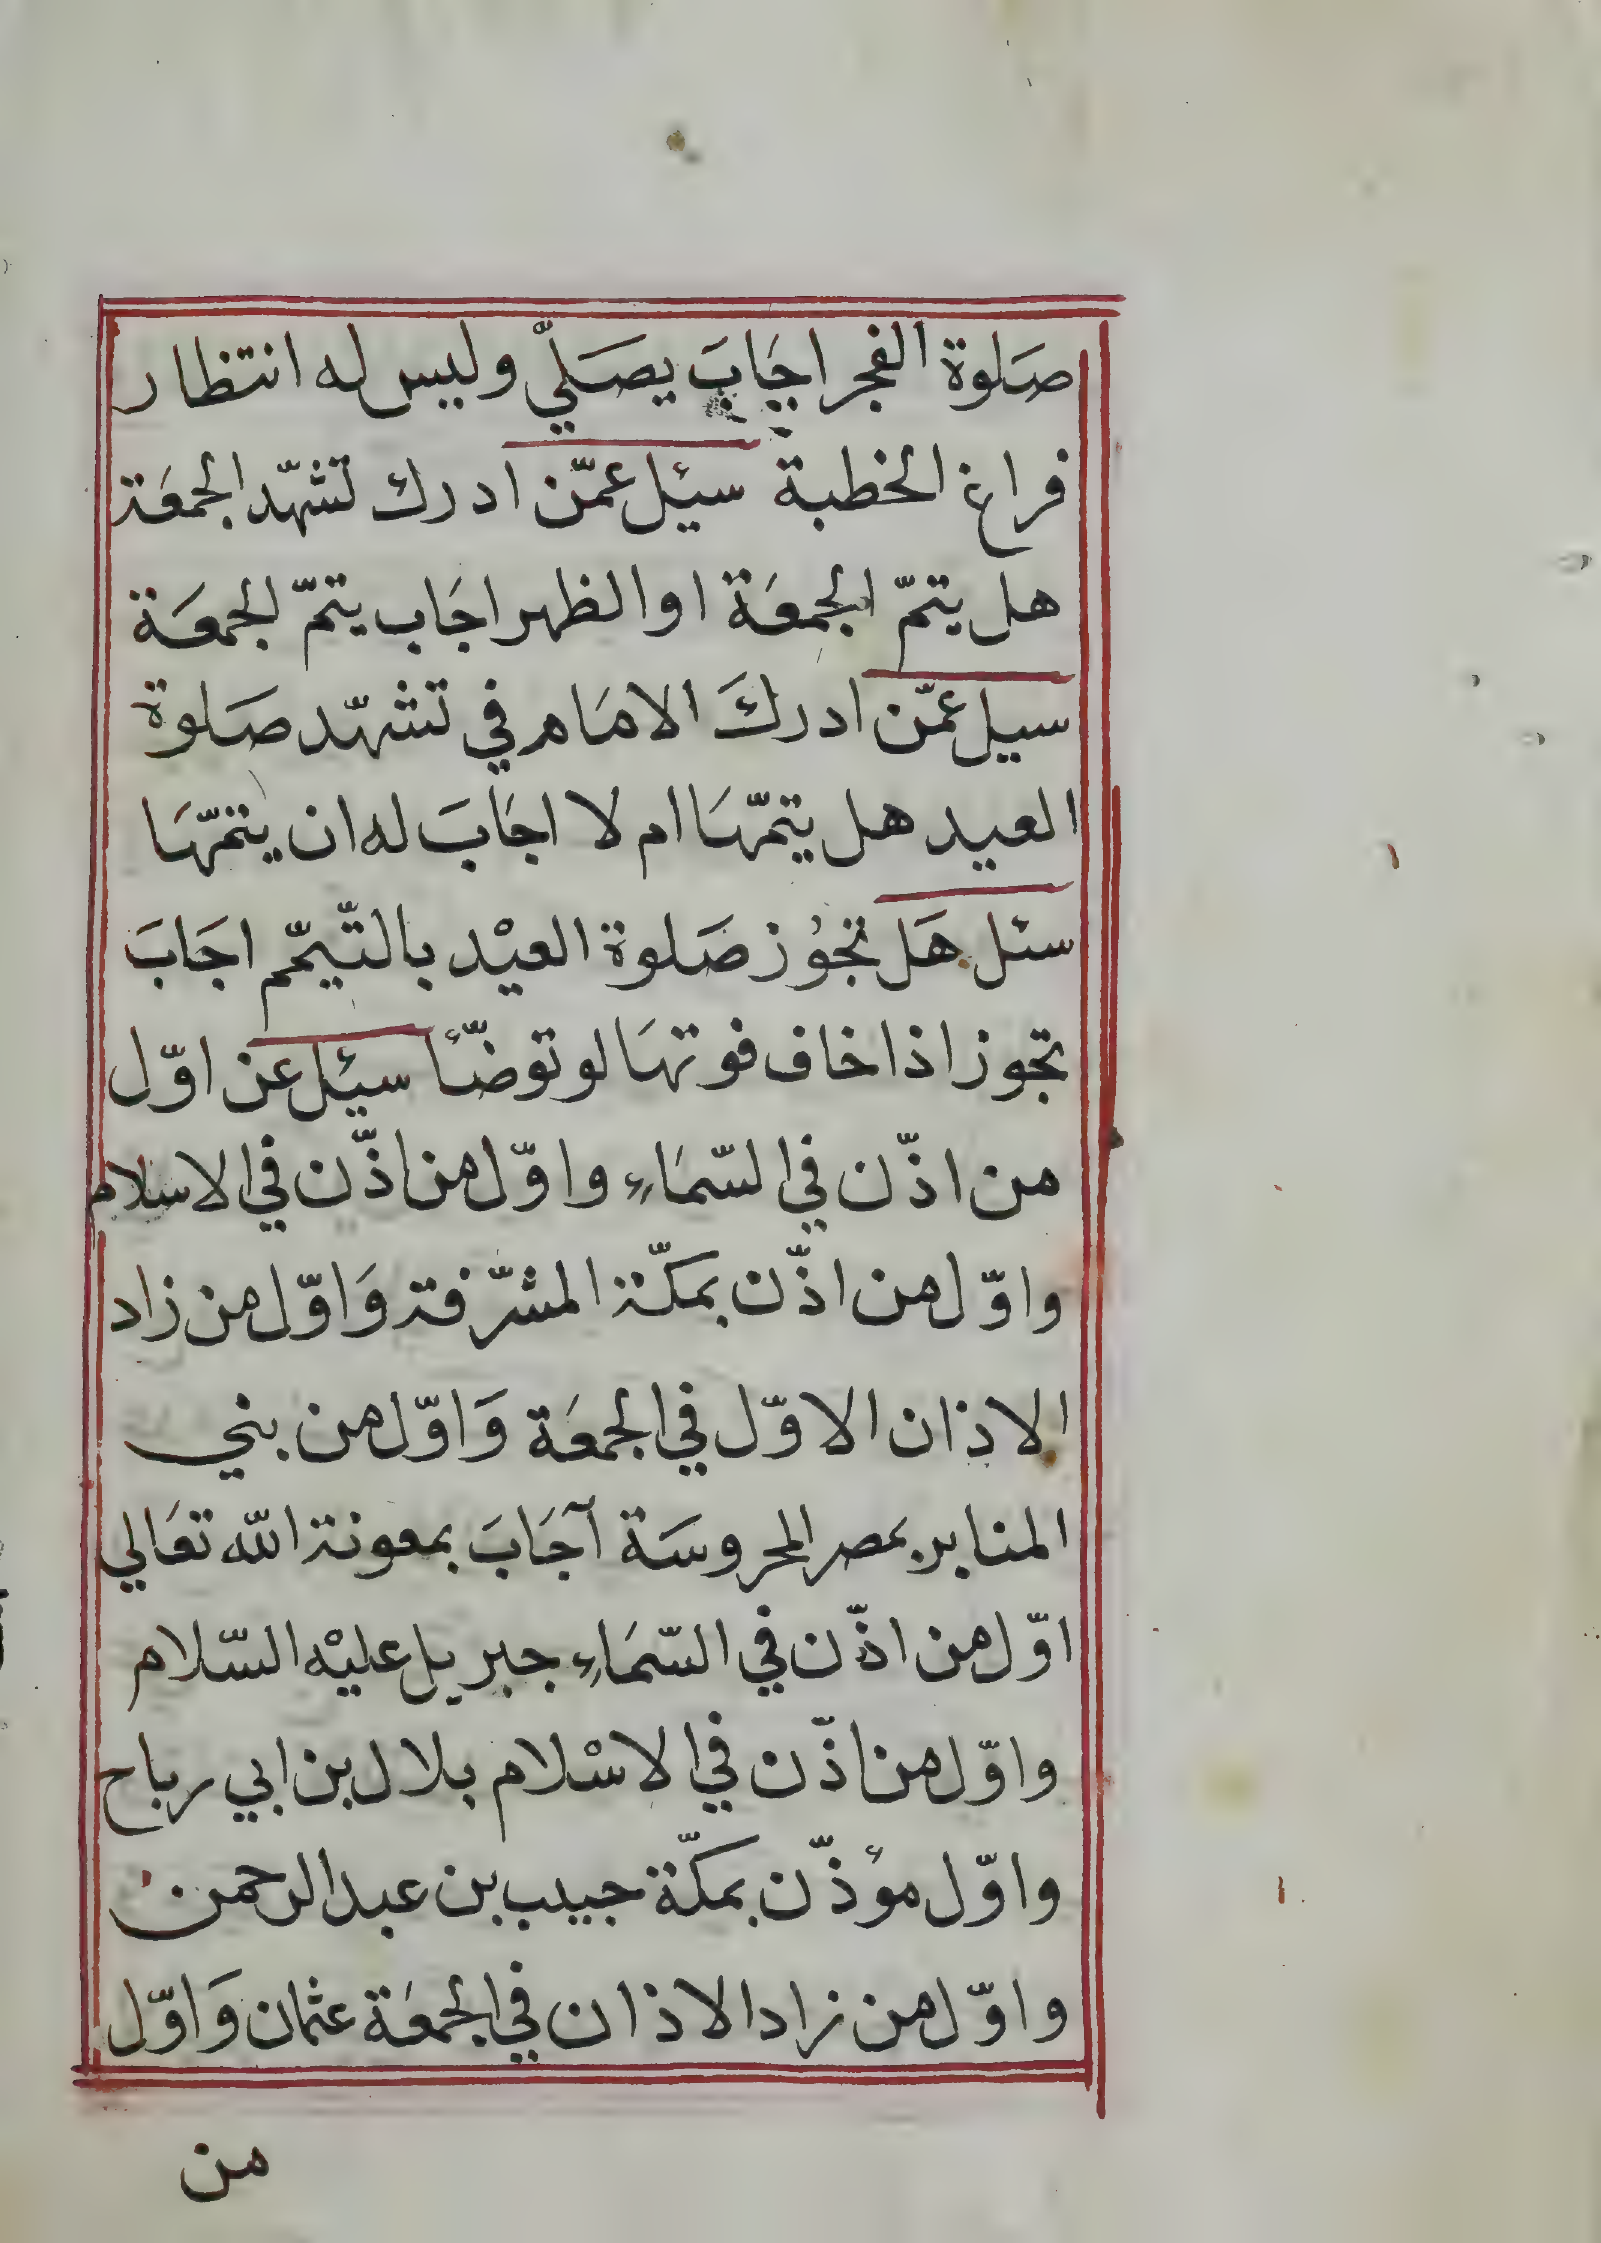 صَلوة الفجر اجَابَ يصَلّي وليس له انتظار
فراغ الخطبة سئِل عمّن ادرك تشهّد الجمعَة
هل يتمّ الجمعَة او الظهر اجَاب يتمّ الجمعَة
سيل عمّن ادركَ الامَام في تشهّد صَلوة
العيد هل يتمّهَا ام لا اجَابَ له ان يتمّهَا
سئل هَل تجوُز صَلوة العيْد بالتّيمّم اجَابَ
تجوز اذا خاف فوتهَا لو توضّأ سئِل عن اوّل
من اذّن في السّمَاءِ واوّل من اذّن في الاسلام
واوّل من اذّن بمكّة المشرّفة وَاوّل من زاد
الاذان الاوّل في الجمعَة وَاوّل من بني
المنابر بمصر المحروسَة آجَابَ بمعونة الله تعَالي
اوّل من اذّن في السّمَاءِ جبريل عليْه السّلام
واوّل من اذّن في الاسْلام بلال بن ابي رباح
واوّل مؤذّن بمكّة حبيب بن عبد الرحمن
واوّل من زاد الاذان في الجمعَة عثمان وَاوّل
من